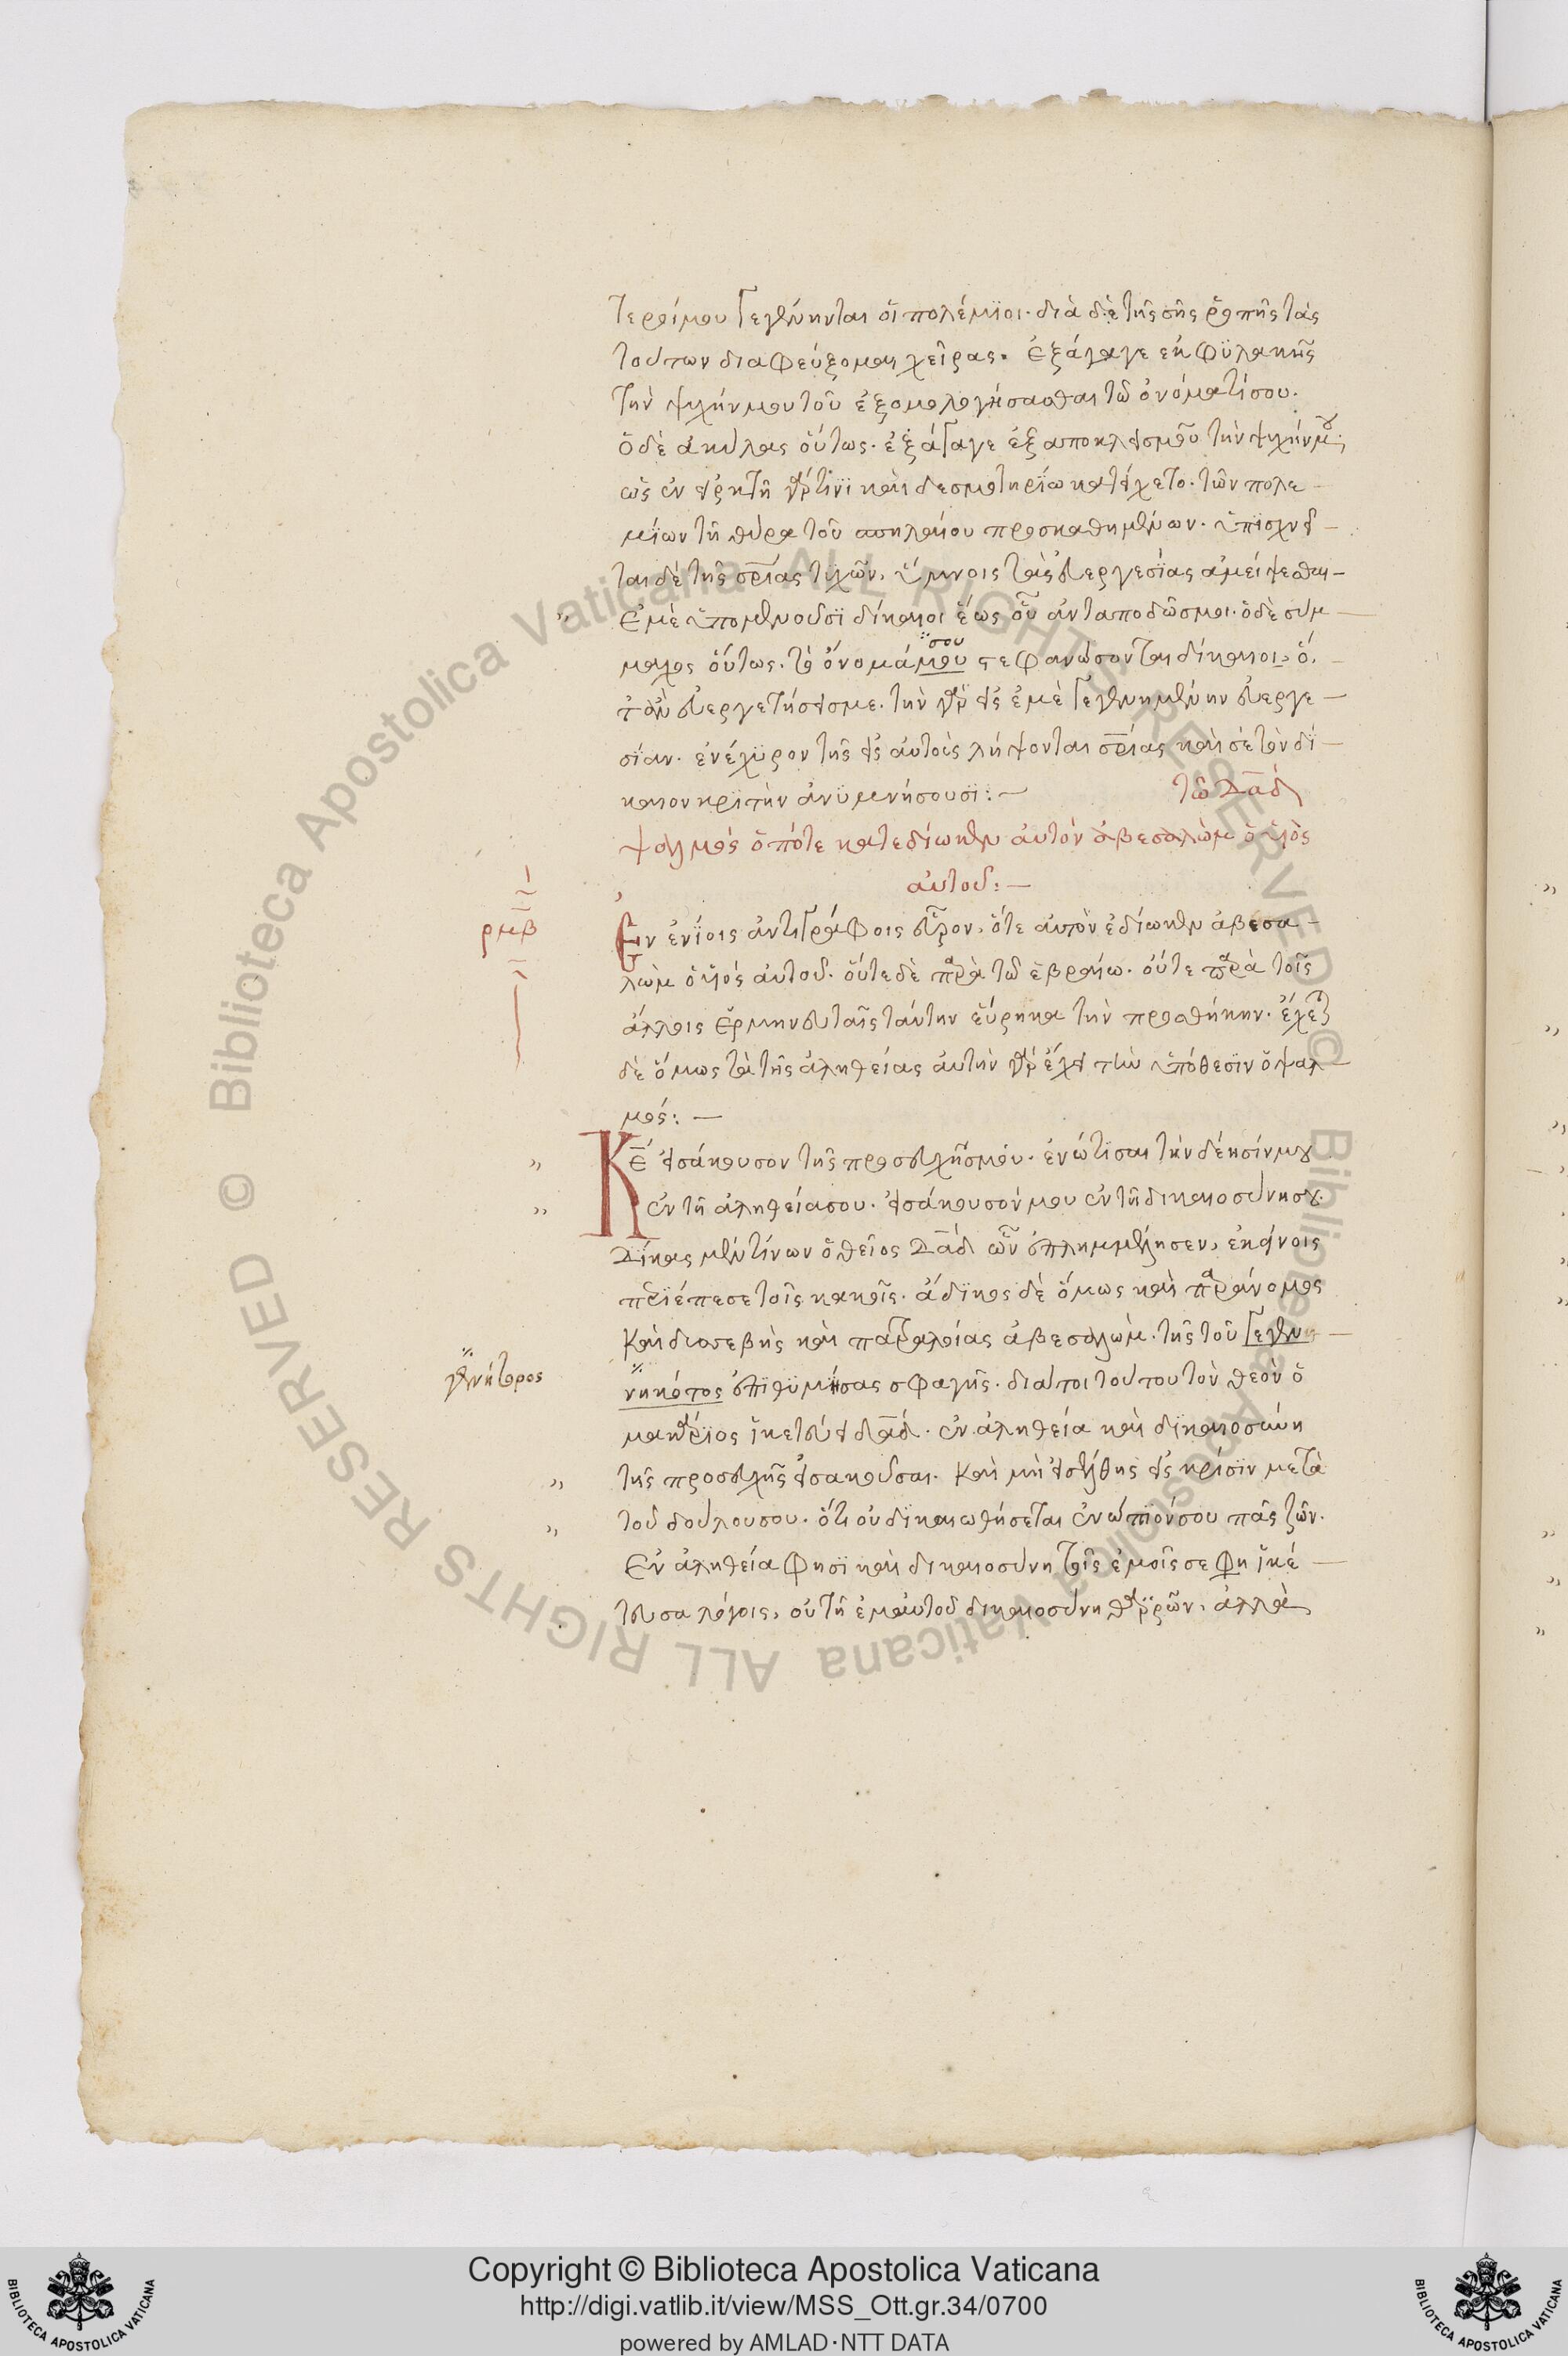 τεροί μου γεγένηνται οἱ πολέμϊοι· διὰ δὲ τῆς σῆς ῥοπῆς τὰς
τούτων διαφεύξομαι χεῖρας· Ἐξάγαγε ἐκ φϋλακῆς
τὴν ψυχήν μου τοῦ ἐξομολογήσασθαι τῶ ὀνόματί σου·
ὁ δὲ ἀκύλας οὕτως· ἐξάγαγε ἐξ αποκλεισμοῦ τὴν ψυχήν μου·
ὡς ἐν εἱρκτῆ γάρ τινϊ καὶ δεσμωτηρΐω κατείχετο· τῶν πολε-
μΐων τῆ θύρα τοῦ σπηλαίου προσκαθημένων· ὑπϊσχνεῖ-
ται δὲ τῆς σρίας τυχῶν, ὕμνοις τὰς εὐεργεσΐας ἀμείψεσθαι-
Ἐμὲ ὑπομενοῦσϊ δίκαιοι ἕως οὗ ἀνταποδῶς μοι· ὁ δὲ σύμ-
μαχος οὕτως· τὸ ὄνομά μου στεφανώσονται δίκαιοι, ὅ-
σου
ταν εὐεργετήσεις με· τὴν γὰρ εἰς ἐμὲ γεγενημένην εὐεργε-
σΐαν· ἐνέχϋρον τῆς εἰς αὐτοὺς λήψονται σρίας καὶ σὲ τὸν δΐ-
καιον κρϊτὴν ἀνϋμνήσουσϊ:-
τῶ Δαδ
ψαλμὸς ὁπότε κατεδίωκεν αὐτὸν ἀβεσαλὼμ ὁ υἱὸς
αὐτοῦ:-
ρμβ
Ἐν ἐνΐοις ἀντιγράφοις εὗρον, ὅτε αυτὸν ἐδίωκεν ἀβεσα-
λὼμ ὁ υἱὸς αὐτοῦ· οὔτε δὲ παρὰ τῶ ἑβραίω· οὔτε παρὰ τοῖς
ἄλλοις ἑρμηνευταῖς ταύτην εὕρηκα τὴν προσθήκην· ἔχεται
δὲ ὅμως τὰ τῆς ἀληθείας αὐτὴν γὰρ ἔχει τὴν ὑπόθεσϊν ὁ ψαλ-
μός:-
Κε εἰσάκουσον τῆς προσευχῆς μου· ἐνώτισαι τὴν δέησίν μου
ἐν τῆ ἀληθείασου· εἰσάκουσόν μου ἐν τῆ δικαιοσύνη σου·
Δΐκας μὲν τίνων ὁ θεῖος Δαδ ὧν ἐπλημμέλησεν, ἐκείνοις
περιέπεσε τοῖς κακοῖς· ἄδϊκος δὲ ὅμως καὶ παράνομος
Καὶ δυσσεβὴς καὶ πατραλοίας ἀβεσαλώμ· τῆς τοῦ γεγεν-
γεννήτορος
νηκότος ἐπϊθϋμήσας σφαγῆς· διατοι τούτου τὸν θεὸν ὁ
μακάρϊος ἱκετεύει δαδ· ἐν ἀληθεία καὶ δϊκαιοσύνη
τῆς προσευχῆς εἰσακοῦσαι· Καὶ μὴ εἰσέλθης εἰς κρίσϊν μετὰ
τοῦ δούλου σου· ὅτι οὐ δϊκαιωθήσεται ἐνώπϊόν σου πᾶς ζῶν·
Ἐν ἀληθεία φησϊ καὶ δικαιοσύνη τοῖς ἐμοῖς σε φη ἱκέ-
τευσα λόγοις, οὐ τῆ ἐμαυτοῦ δικαιοσύνη θαρρῶν, ἀλλὰ
Copyright © Biblioteca Apostolica Vaticana
http://digi.vatlib.it/view/MSS_Ott.gr.34/0700
powered by AMLAD·NTT DATA
BIBLIOTECA APOSTOLICA VATICANA
BIBLIOTECA APOSTOLICA VATICANA
© Biblioteca Apostolica Vaticana ALL RIGHTS RESERVED
© Biblioteca Apostolica Vaticana ALL RIGHTS RESERVED